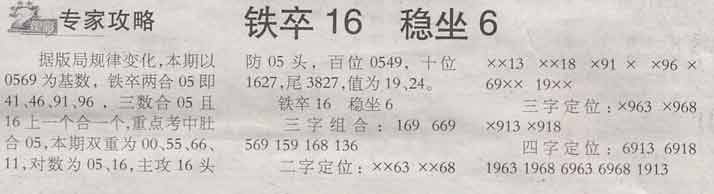 专家攻略
铁卒16 稳坐6
据版局规律变化,本期以
0569为基数，铁卒两合05即
41、46、91、96，三数合05且
16上一个合一个,重点考中肚
合05,本期双重为00、55、66、
11,对数为05、16,主攻16头
防05头，百位0549，十位
1627,尾3827,值为19、24。
铁卒16 稳坐6
三字组合：169 669
569 159 168 136
二字定位：××63 ××68
××13 ××18 ×91× ×96×
69×× 19××
三字定位：×963 ×968
×913 ×918
四字定位：6913 6918
1963 1968 6963 6968 1913